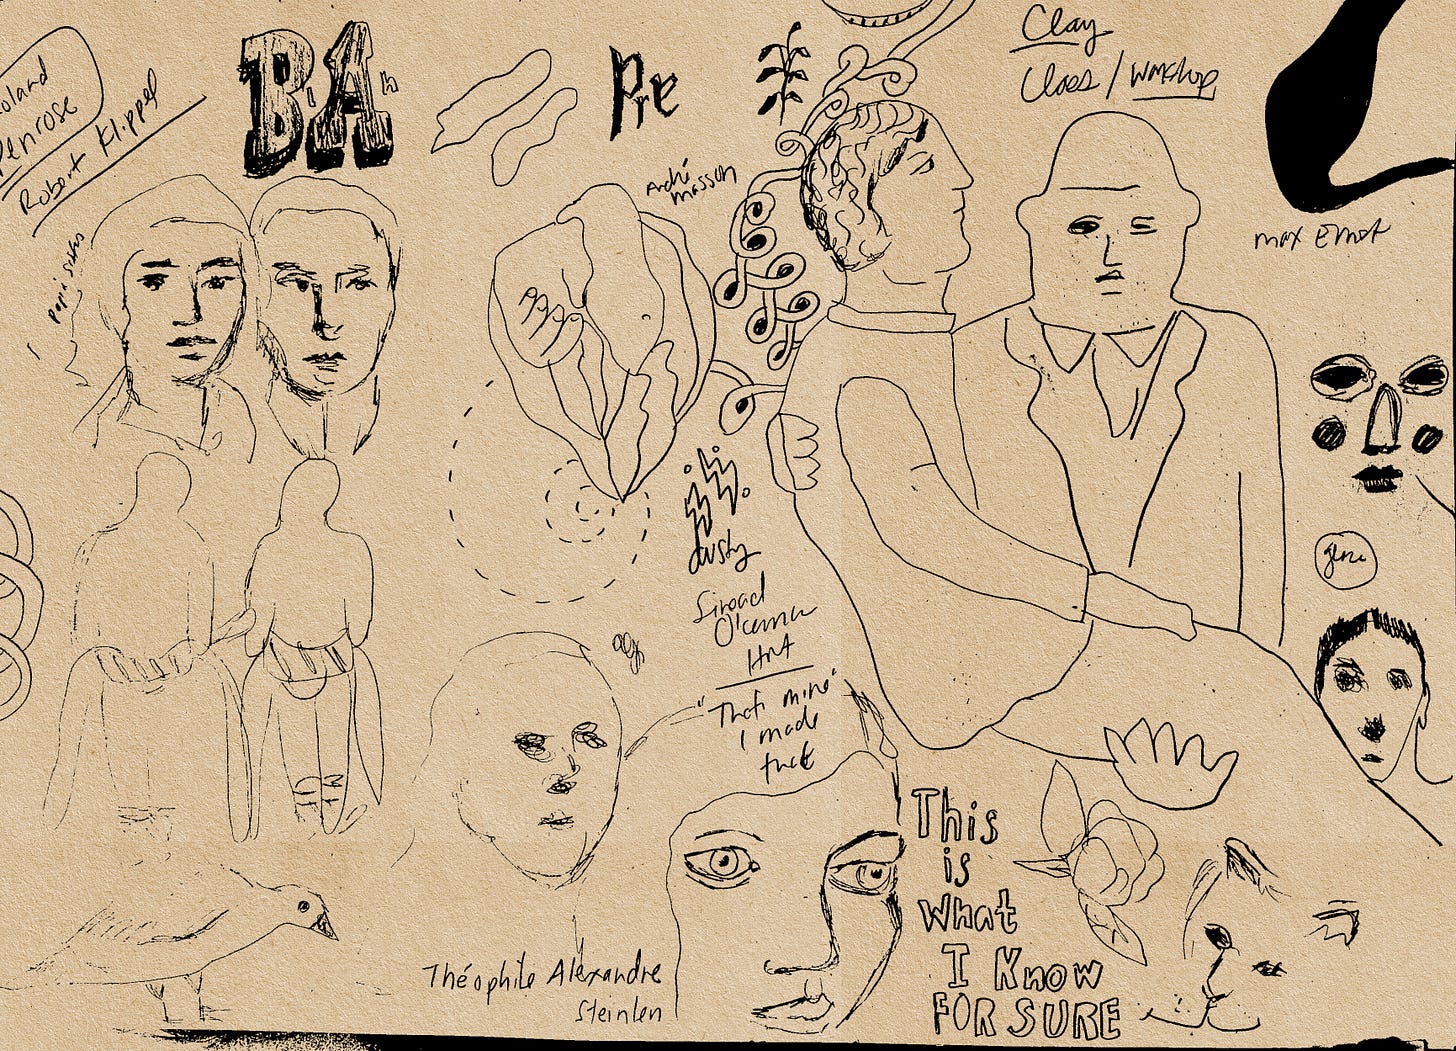 Roland
Penrose
Robert Klippel
BA
Pre
André
masson
Clay
Class / Workshop
max Ernst
dusty
Sinead
O'connor
Hat
"That's mine"
I made
that
gene
This
is
What
I KNOW
FOR SURE
Théophile Alexandre
Steinlen